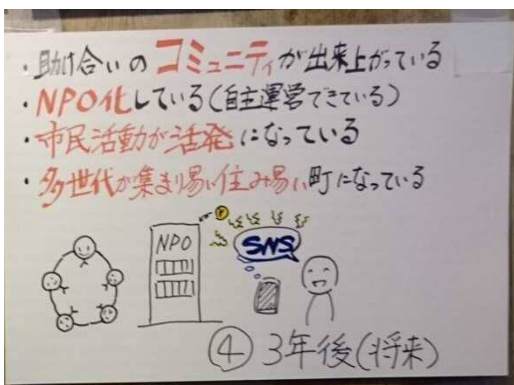 ・助け合いのコミュニティが出来上がっている
・NPO化している(自主運営できている)
・市民活動が活発になっている
・多世代が集まり易い住み易い町になっている
NPO
SNS
④ 3年後(将来)